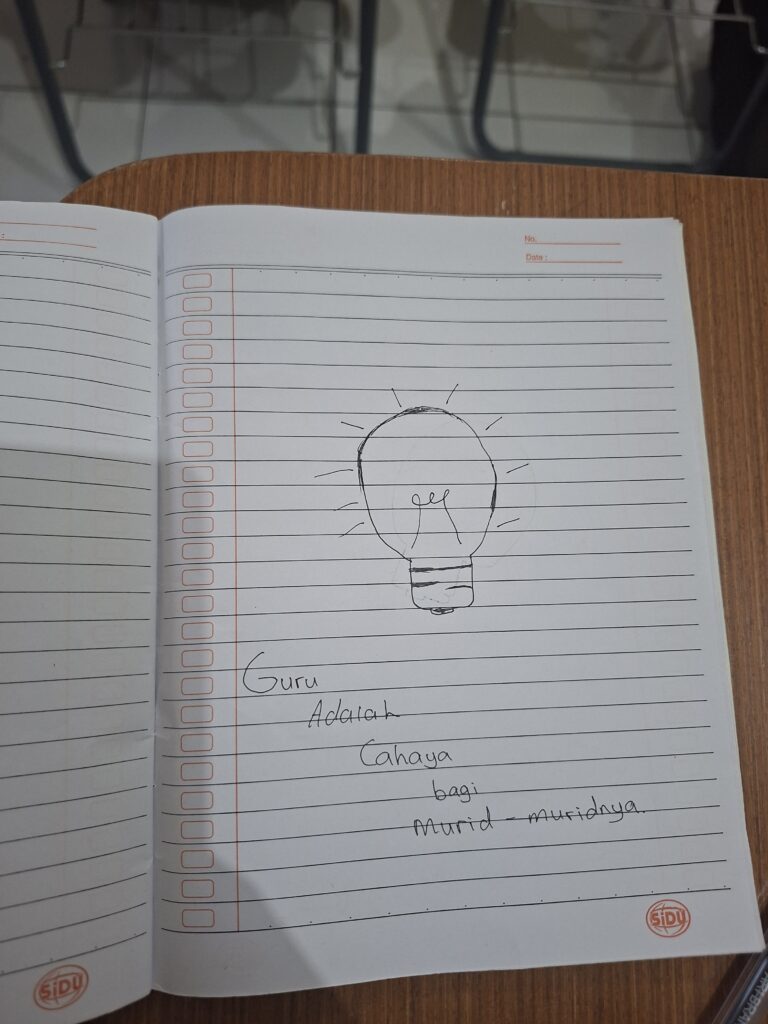 No.
Date :
Guru
Adalah
Cahaya
bagi
Murid - muridnya.
SiDU
SiDU